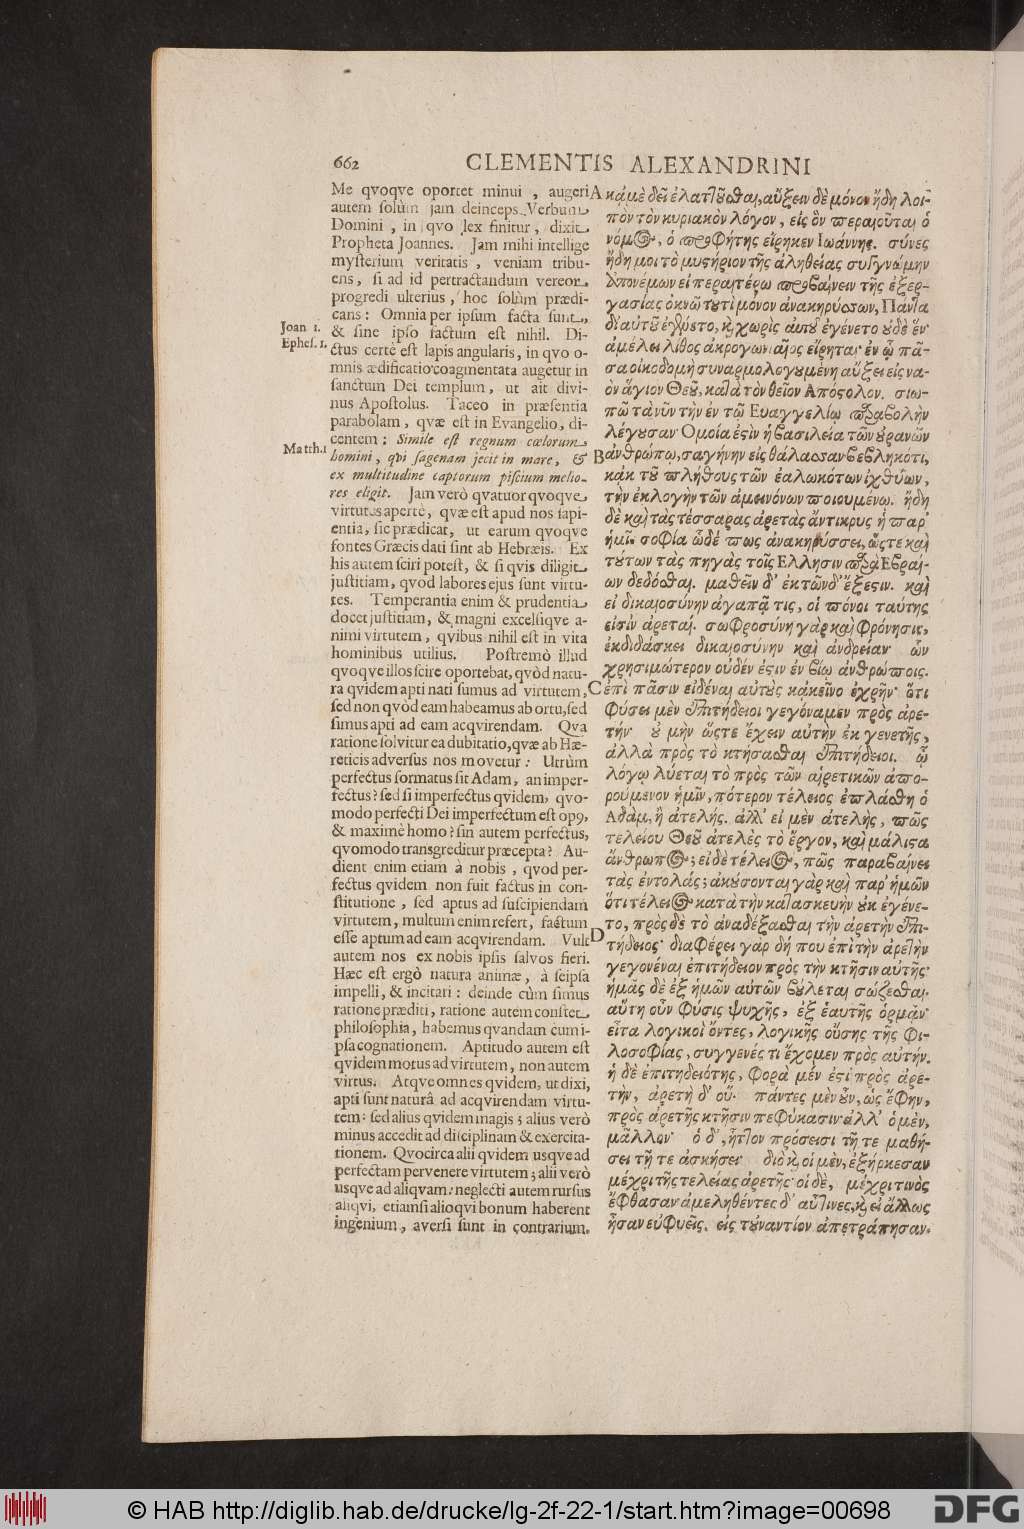 662
CLEMENTIS ALEXANDRINI
Me qvoqve oportet minui, augeri
autem solùm jam deinceps Verbum
Domini, in qvo lex finitur, dixit
Propheta Joannes. Jam mihi intellige
mysterium veritatis, veniam tribu-
ens, si ad id pertractandum vereor
progredi ulterius, hoc solùm prædi-
cans: Omnia per ipsum facta sunt,
& sine ipso factum est nihil. Di-
ctus certè est lapis angularis, in qvo o-
mnis ædificatio coagmentata augetur in
sanctum Dei templum, ut ait divi-
nus Apostolus. Taceo in præsentia
parabolam, qvæ est in Evangelio, di-
centem: Simile est regnum cœlorum
homini, qvi sagenam jecit in mare, &
ex multitudine captorum piscium melio-
res eligit. Jam verò qvatuor qvoqve
virtutes apertè, qvæ est apud nos sapi-
entia, sic prædicat, ut earum qvoqve
fontes Græcis dati sint ab Hebræis. Ex
his autem sciri potest, & si qvis diligit
justitiam, qvod labores ejus sunt virtu-
tes. Temperantia enim & prudentia
docet justitiam, & magni excelsiqve a-
nimi virtutem, qvibus nihil est in vita
hominibus utilius. Postremò illud
qvoqve illos scire oportebat, qvòd natu-
ra qvidem apti nati sumus ad virtutem,
sed non qvòd eam habeamus ab ortu, sed
simus apti ad eam acqvirendam. Qva
ratione solvitur ea dubitatio, qvæ ab Hæ-
reticis adversus nos movetur: Utrùm
perfectus formatus sit Adam, an imper-
fectus? sed si imperfectus qvidem, qvo-
modo perfecti Dei imperfectum est opꝰ,
& maximè homo? sin autem perfectus,
qvomodo transgreditur præcepta? Au-
dient enim etiam à nobis, qvod per-
fectus qvidem non fuit factus in con-
stitutione, sed aptus ad suscipiendam
virtutem, multum enim refert, factum
esse aptum ad eam acqvirendam. Vult
autem nos ex nobis ipsis salvos fieri.
Hæc est ergò natura animæ, à seipsa
impelli, & incitari: deinde cùm simus
ratione præditi, ratione autem constet
philosophia, habemus qvandam cum i-
psa cognationem. Aptitudo autem est
qvidem motus ad virtutem, non autem
virtus. Atqve omnes qvidem, ut dixi,
apti sunt naturâ ad acqvirendam virtu-
tem: sed alius qvidem magis; alius verò
minus accedit ad disciplinam & exercita-
tionem. Qvocirca alii qvidem usqve ad
perfectam pervenere virtutem; alii verò
usqve ad aliqvam: neglecti autem rursus
aliqvi, etiamsi alioqvi bonum haberent
ingenium, aversi sunt in contrarium.
Joan 1.
Ephes. 1.
Matth.1
A
B
C
D
κᾀμὲ δεῖ ἐλαττοῦσθαι, αὔξειν δὲ μόνον ἤδη λοι-
πὸν τὸν κυριακὸν λόγον, εἰς ὃν περαιοῦται ὁ
νόμος, ὁ προφήτης εἴρηκεν Ιωάννης. σύνες
ἤδη μοι τὸ μυστήριον τῆς ἀληθείας συγγνώμην
ἀπονέμων εἰ περαιτέρω προβαίνειν τῆς ἐξερ-
γασίας ὀκνῶ τουτὶ μόνον ἀνακηρύσσων, Πάντα
δι αὐτοῦ ἐγένετο, καὶ χωρὶς αὐτοῦ ἐγένετο οὐδὲ ἕν·
ἀμέλει λίθος ἀκρογωνιαῖος εἴρηται· ἐν ᾧ πᾶ-
σα οἰκοδομὴ συναρμολογουμένη αὔξει εἰς να-
ὸν ἅγιον Θεοῦ, κατὰ τὸν θεῖον Απόστολον. σιω-
πῶ τανῦν τὴν ἐν τῷ Ευαγγελίῳ παραβολὴν
λέγουσαν· Ομοία ἐστὶν ἡ βασιλεία τῶν οὐρανῶν
ἀνθρώπῳ, σαγήνην εἰς θάλασσαν βεβληκότι,
κἀκ τοῦ πλήθους τῶν ἑαλωκότων ἰχθύων,
τὴν ἐκλογὴν τῶν ἀμεινόνων ποιουμένῳ. ἤδη
δὲ καὶ τὰς τέσσαρας ἀρετὰς ἄντικρυς ἡ παρ'
ἡμῖν σοφία ὧδέ πως ἀνακηρύσσει, ὥστε καὶ
τούτων τὰς πηγὰς τοῖς Ελλησιν παρὰ Εβραί-
ων δεδόσθαι. μαθεῖν δ' ἐκ τῶνδ' ἔξεστιν. καὶ
εἰ δικαιοσύνην ἀγαπᾷ τις, οἱ πόνοι ταύτης
εἰσὶν ἀρεταί. σωφροσύνη γὰρ καὶ φρόνησις,
ἐκδιδάσκει δικαιοσύνην καὶ ἀνδρείαν· ὧν
χρησιμώτερον οὐδέν ἐστιν ἐν βίῳ ἀνθρώποις.
ἐπὶ πᾶσιν εἰδέναι αὐτοὺς κᾀκεῖνο ἐχρῆν· ὅτι
φύσει μὲν ἐπιτήδειοι γεγόναμεν πρὸς ἀρε-
τήν· οὐ μὴν ὥστε ἔχειν αὐτὴν ἐκ γενετῆς,
ἀλλὰ πρὸς τὸ κτήσασθαι ἐπιτήδειοι. ᾧ
λόγῳ λύεται τὸ πρὸς τῶν αἱρετικῶν ἀπο-
ρούμενον ἡμῖν, πότερον τέλειος ἐπλάσθη ὁ
Αδάμ, ἢ ἀτελής. ἀλλ' εἰ μὲν ἀτελής, πῶς
τελείου Θεοῦ ἀτελὲς τὸ ἔργον, καὶ μάλιστα
ἄνθρωπος; εἰ δὲ τέλειος, πῶς παραβαίνει
τὰς ἐντολάς; ἀκούσονται γὰρ καὶ παρ' ἡμῶν
ὅτι τέλειος κατὰ τὴν κατασκευὴν οὐκ ἐγένε-
το, πρὸς δὲ τὸ ἀναδέξασθαι τὴν ἀρετὴν ἐπι-
τήδειος· διαφέρει γὰρ δή που ἐπὶ τὴν ἀρετὴν
γεγονέναι ἐπιτήδειον πρὸς τὴν κτῆσιν αὐτῆς·
ἡμᾶς δὲ ἐξ ἡμῶν αὐτῶν βούλεται σώζεσθαι.
αὕτη οὖν φύσις ψυχῆς, ἐξ ἑαυτῆς ὁρμᾶν·
εἶτα λογικοὶ ὄντες, λογικῆς οὔσης τῆς φι-
λοσοφίας, συγγενές τι ἔχομεν πρὸς αὐτήν.
ἡ δὲ ἐπιτηδειότης, φορὰ μέν ἐστι πρὸς ἀρε-
τὴν, ἀρετὴ δ' οὔ. πάντες μὲν οὖν, ὡς ἔφην,
πρὸς ἀρετῆς κτῆσιν πεφύκασιν· ἀλλ' ὁ μὲν,
μᾶλλον· ὁ δ', ἧττον πρόσεισι τῇ τε μαθή-
σει τῇ τε ἀσκήσει· διὸ καὶ οἱ μὲν, ἐξήρκεσαν
μέχρι τῆς τελείας ἀρετῆς· οἱ δὲ, μέχρι τινὸς
ἔφθασαν· ἀμεληθέντες δ' αὖ τινες, καὶ εἰ ἄλλως
ἦσαν εὐφυεῖς, εἰς τοὐναντίον ἀπετράπησαν.
© HAB http://diglib.hab.de/drucke/lg-2f-22-1/start.htm?image=00698
DFG